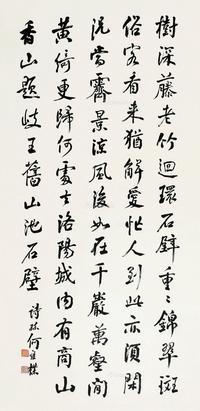 樹深藤老竹迴環石壁重々錦翠斑
俗客看来猶解愛忙人到此亦須閑
況當霽景涼風後如在千巖萬壑間
黄綺更歸何處去洛陽城内有商山
香山題歧王舊山池石壁 詩孫何維樸